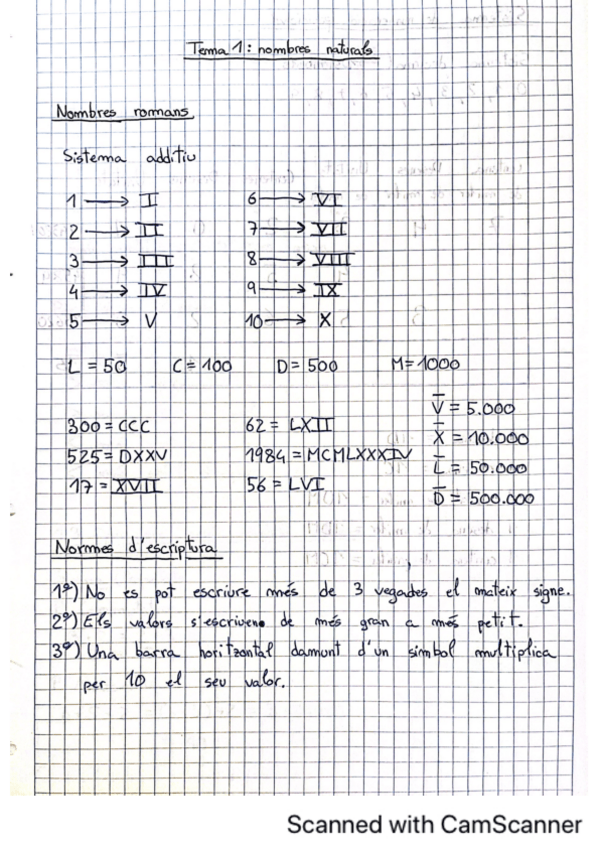 Tema 1: nombres naturals
Nombres romans
Sistema additiu
1 → I
2 → II
3 → III
4 → IV
5 → V
6 → VI
7 → VII
8 → VIII
9 → IX
10 → X
L = 50 C = 100 D = 500 M = 1000
300 = CCC
525 = DXXV
17 = XVII
62 = LXII
1984 = MCMLXXXIV
56 = LVI
V̅ = 5.000
X̅ = 10.000
L̅ = 50.000
D̅ = 500.000
Normes d'escriptura
1º) No es pot escriure més de 3 vegades el mateix signe.
2º) Els valors s'escriveno de més gran a més petit.
3º) Una barra horitzontal damunt d'un simbol multiplica
per 10 el seu valor.
Scanned with CamScanner